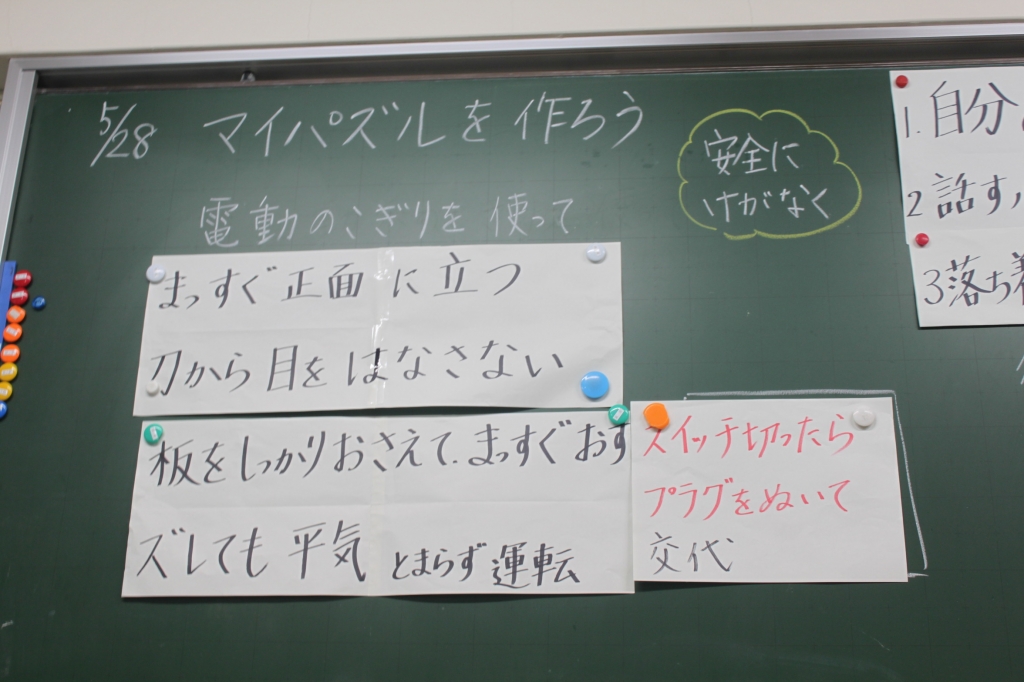 5/28 マイパズルを作ろう
安全に
けがなく
電動のこぎりを使って
まっすぐ正面に立つ
刀から目をはなさない
板をしっかりおさえて、まっすぐおす
ズレても平気 とまらず運転
スイッチ切ったら
プラグをぬいて
交代
1.自分
2話す
3落ち着